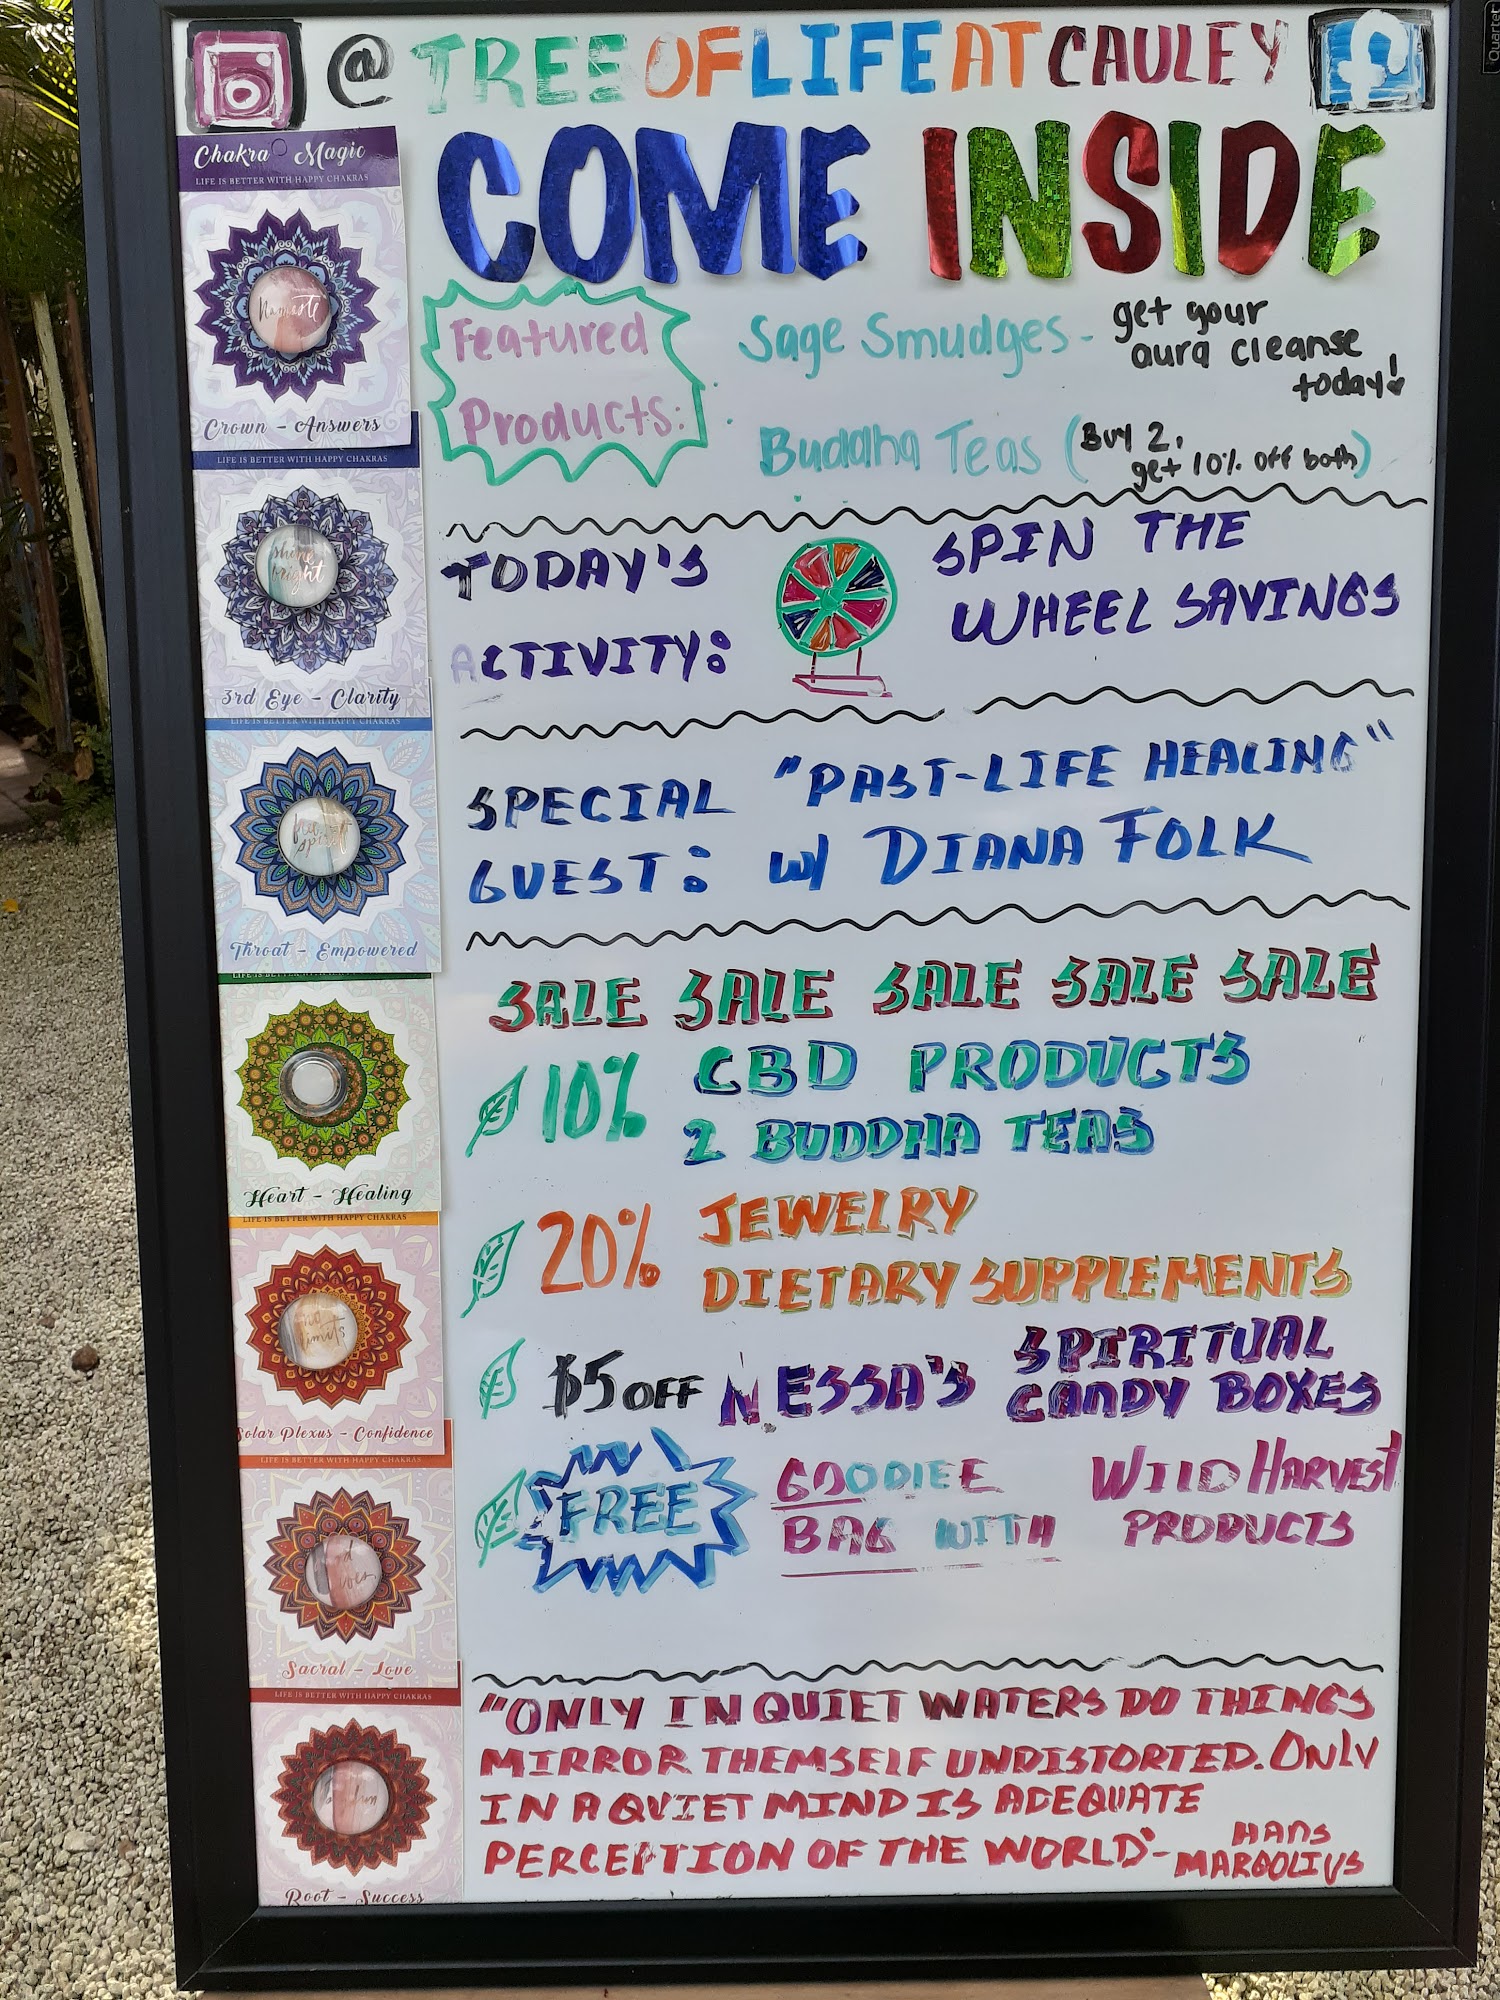 @TREEOFLIFEATCAULEY
COME INSIDE
Featured
Products:
Sage Smudges - get your
aura cleanse
today!
Buddha Teas (Buy 2,
get 10% off both)
TODAY'S
ACTIVITY:
SPIN THE
WHEEL SAVINGS
SPECIAL
GUEST:
"PAST-LIFE HEALING"
w/ DIANA FOLK
SALE SALE SALE SALE SALE
10% CBD PRODUCTS
2 BUDDHA TEAS
20% JEWELRY
DIETARY SUPPLEMENTS
$5 OFF NESSA'S SPIRITUAL
CANDY BOXES
FREE GOODIEE
BAG WITH
WILD HARVEST
PRODUCTS
"ONLY IN QUIET WATERS DO THINGS
MIRROR THEMSELF UNDISTORTED. ONLY
IN A QUIET MIND IS ADEQUATE
PERCEPTION OF THE WORLD" -
HANS
MARGOLIUS
Chakra Magic
LIFE IS BETTER WITH HAPPY CHAKRAS
Namaste
Crown - Answers
LIFE IS BETTER WITH HAPPY CHAKRAS
shine
bright
3rd Eye - Clarity
LIFE IS BETTER WITH HAPPY CHAKRAS
Throat - Empowered
LIFE IS BETTER WITH HAPPY CHAKRAS
Heart - Healing
LIFE IS BETTER WITH HAPPY CHAKRAS
no
limits
Solar Plexus - Confidence
LIFE IS BETTER WITH HAPPY CHAKRAS
Sacral - Love
LIFE IS BETTER WITH HAPPY CHAKRAS
Root - Success
Quartet